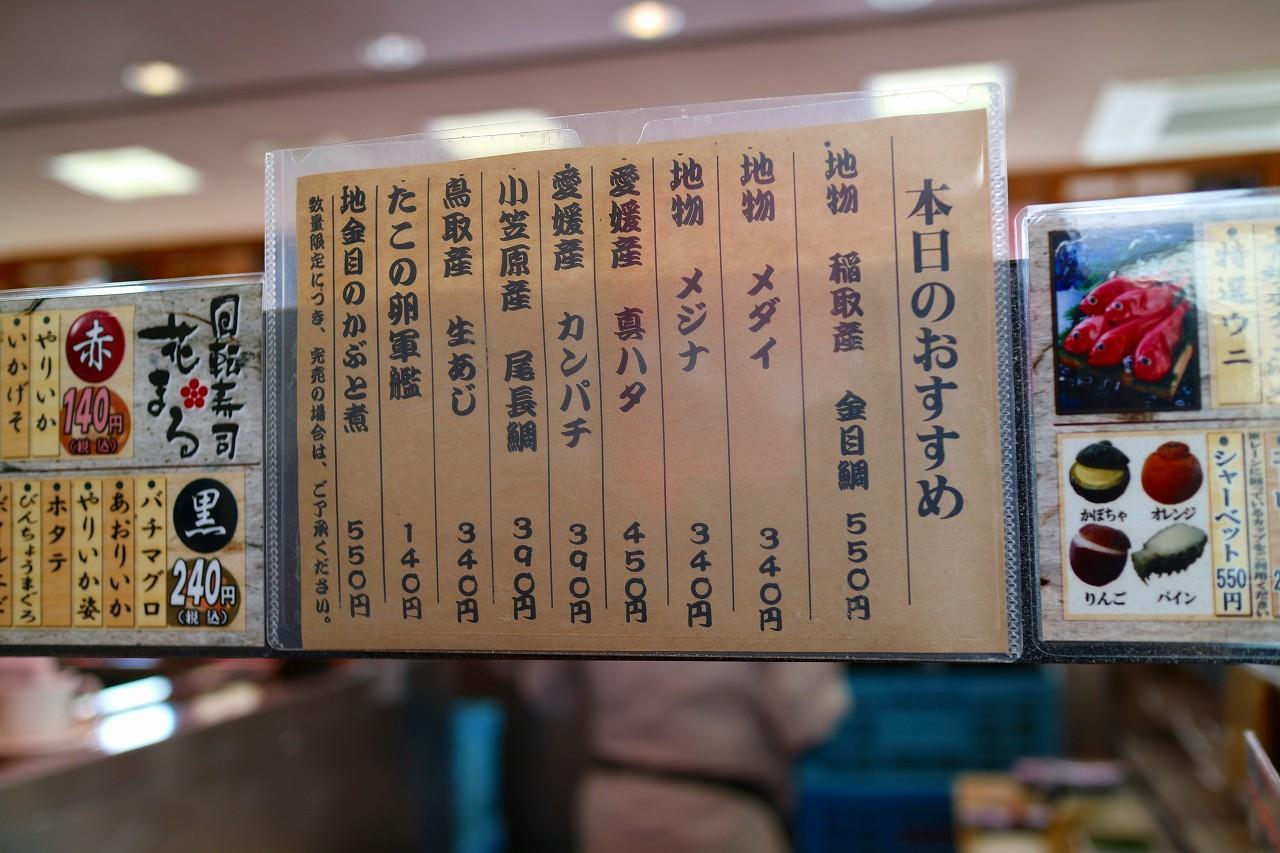 本日のおすすめ
地物 稲取産 金目鯛 550円
地物 メダイ 340円
地物 メジナ 340円
愛媛産 真ハタ 450円
愛媛産 カンパチ 390円
小笠原産 尾長鯛 390円
鳥取産 生あじ 340円
たこの卵軍艦 140円
地金目のかぶと煮 550円
数量限定につき、完売の場合は、ご了承ください。
回転寿司
花まる
赤
140円
(税込)
やりいか
いかげそ
黒
240円
(税込)
バチマグロ
あおりいか
やりいか姿
ホタテ
びんちょうまぐろ
特選ウニ
シャーベット 550円
かぼちゃ
オレンジ
りんご
パイン